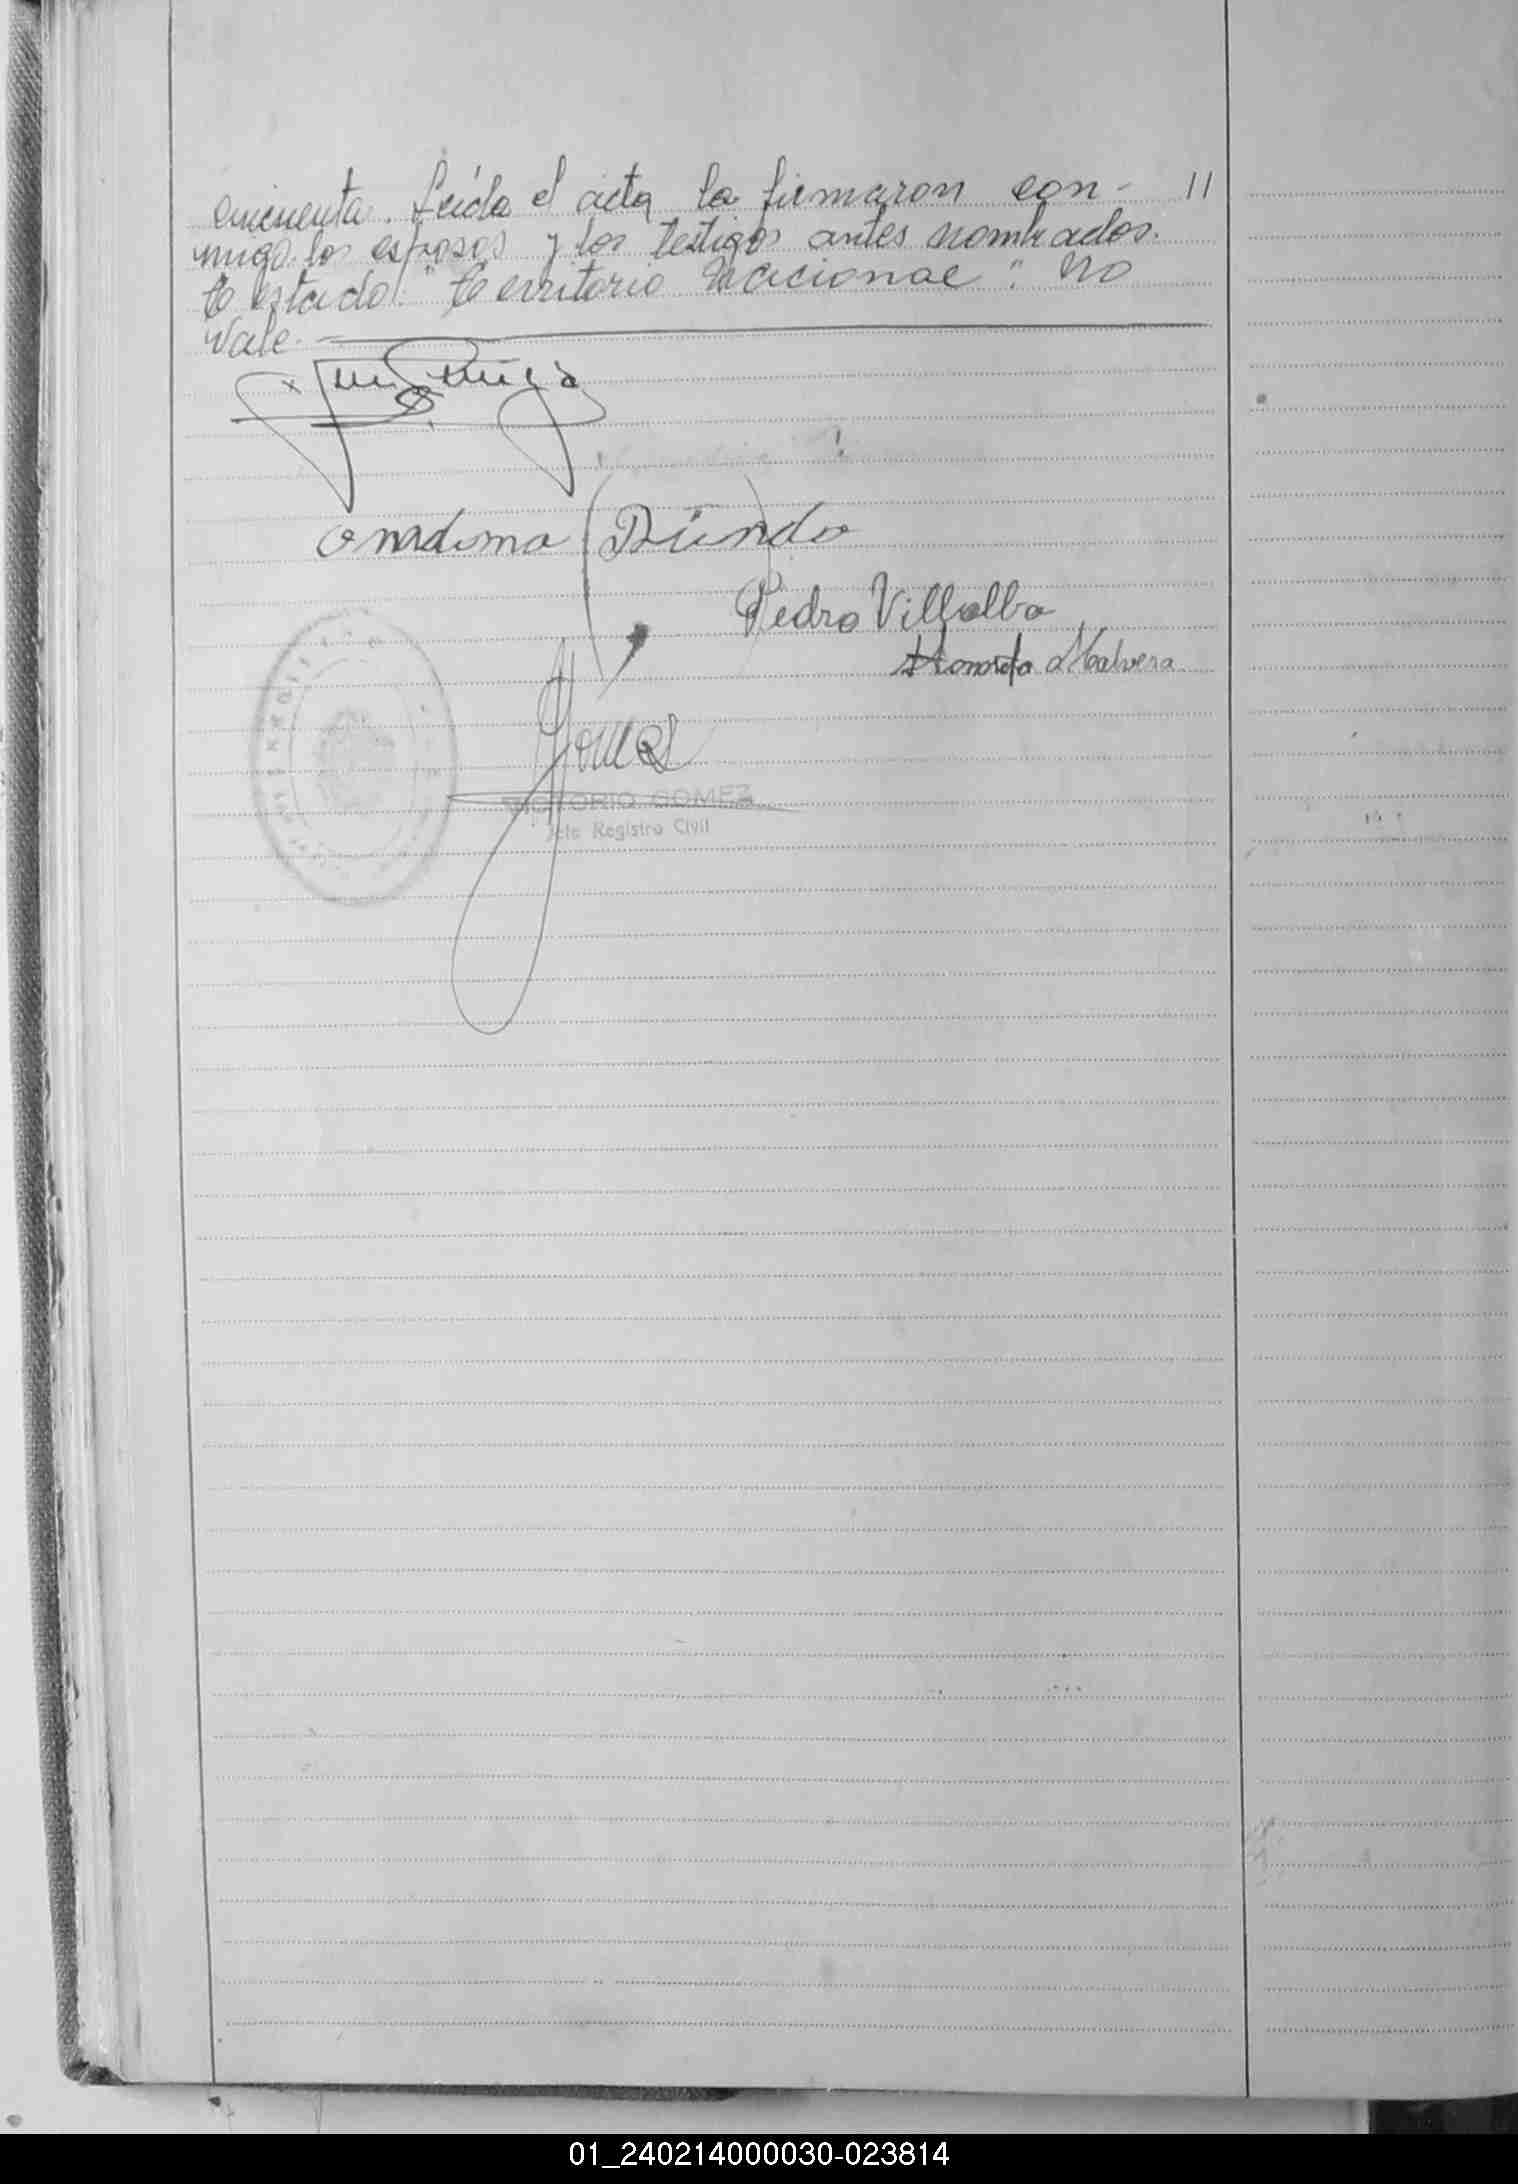 cincuenta. Leída el acta la firmaron con- 11
migo los esposos y los testigos antes nombrados.
Testado: "Territorio Nacional": No
Vale.
Pedro Villalba
Gomez
VICTORIO GOMEZ
Jefe Registro Civil
01_240214000030-023814